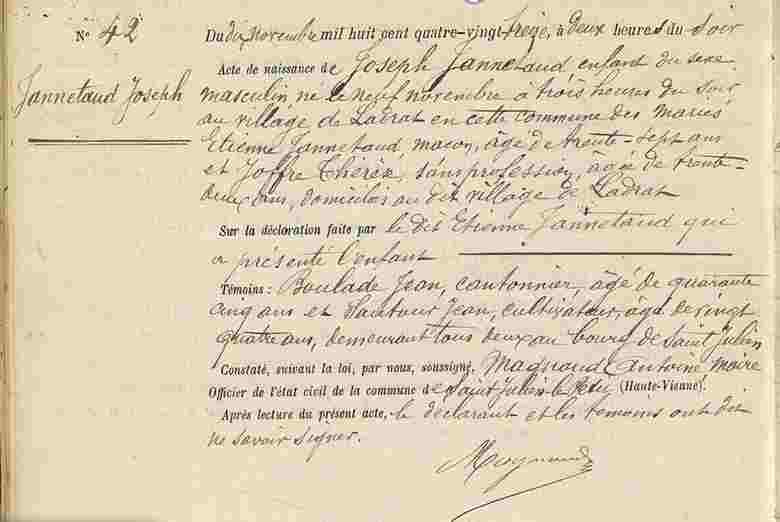 N° 42
Jannetaud Joseph
Du dix novembre mil huit cent quatre-vingt-treize, à deux heures du soir
Acte de naissance de Joseph Jannetaud, enfant du sexe
masculin, né le neuf novembre à trois heures du soir
au village de Ladrat en cette commune des mariés
Etienne Jannetaud maçon, âgé de trente-sept ans
et Joffre Thérèse, sans profession, âgée de trente-
deux ans, domiciliés au dit village de Ladrat
Sur la déclaration faite par le dit Etienne Jannetaud qui
a présenté l'enfant
Témoins : Boulade Jean, cantonnier, âgé de quarante
cinq ans et Jean, cultivateur, âgé de vingt
quatre ans, demeurant tous deux au bourg de Saint Julien
Constaté, suivant la loi, par nous, soussigné, Antoine Maire
Officier de l'état civil de la commune de Saint Julien le Petit (Haute-Vienne).
Après lecture du présent acte, le déclarant et les témoins ont dit
ne savoir signer.